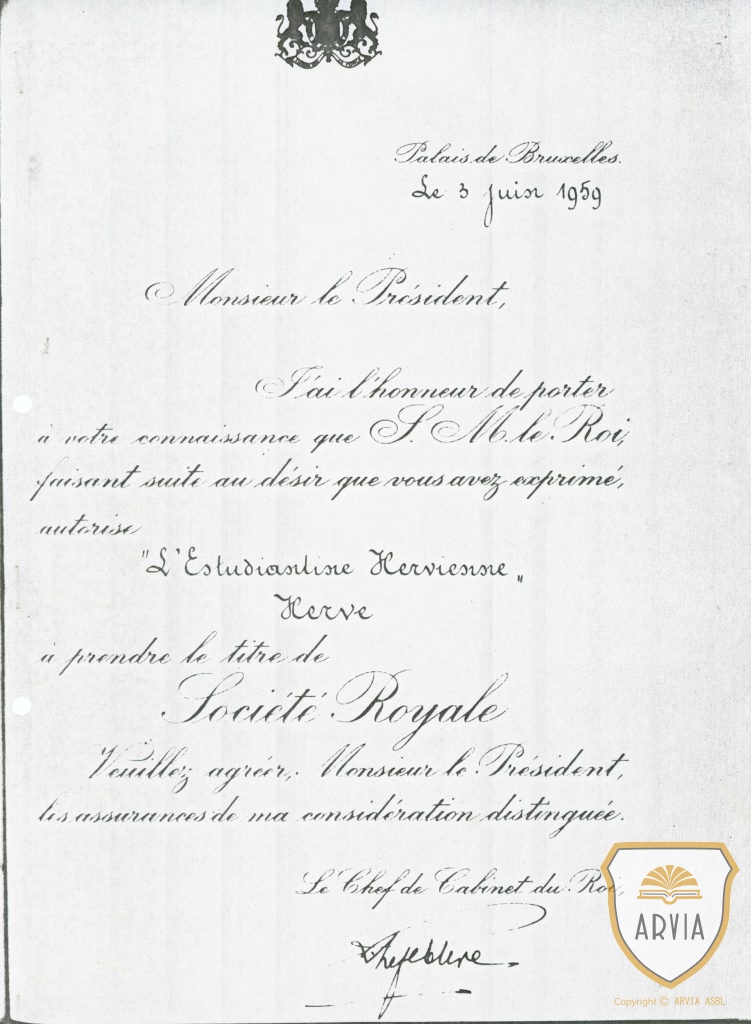 Palais de Bruxelles.
Le 3 juin 1959
Monsieur le Président,
J'ai l'honneur de porter
à votre connaissance que S. M. le Roi,
faisant suite au désir que vous avez exprimé,
autorise
"L'Estudiantine Hervienne"
Herve
à prendre le titre de
Société Royale
Veuillez agréer, Monsieur le Président,
les assurances de ma considération distinguée.
Le Chef de Cabinet du Roi,
ARVIA
Copyright © ARVIA ASBL